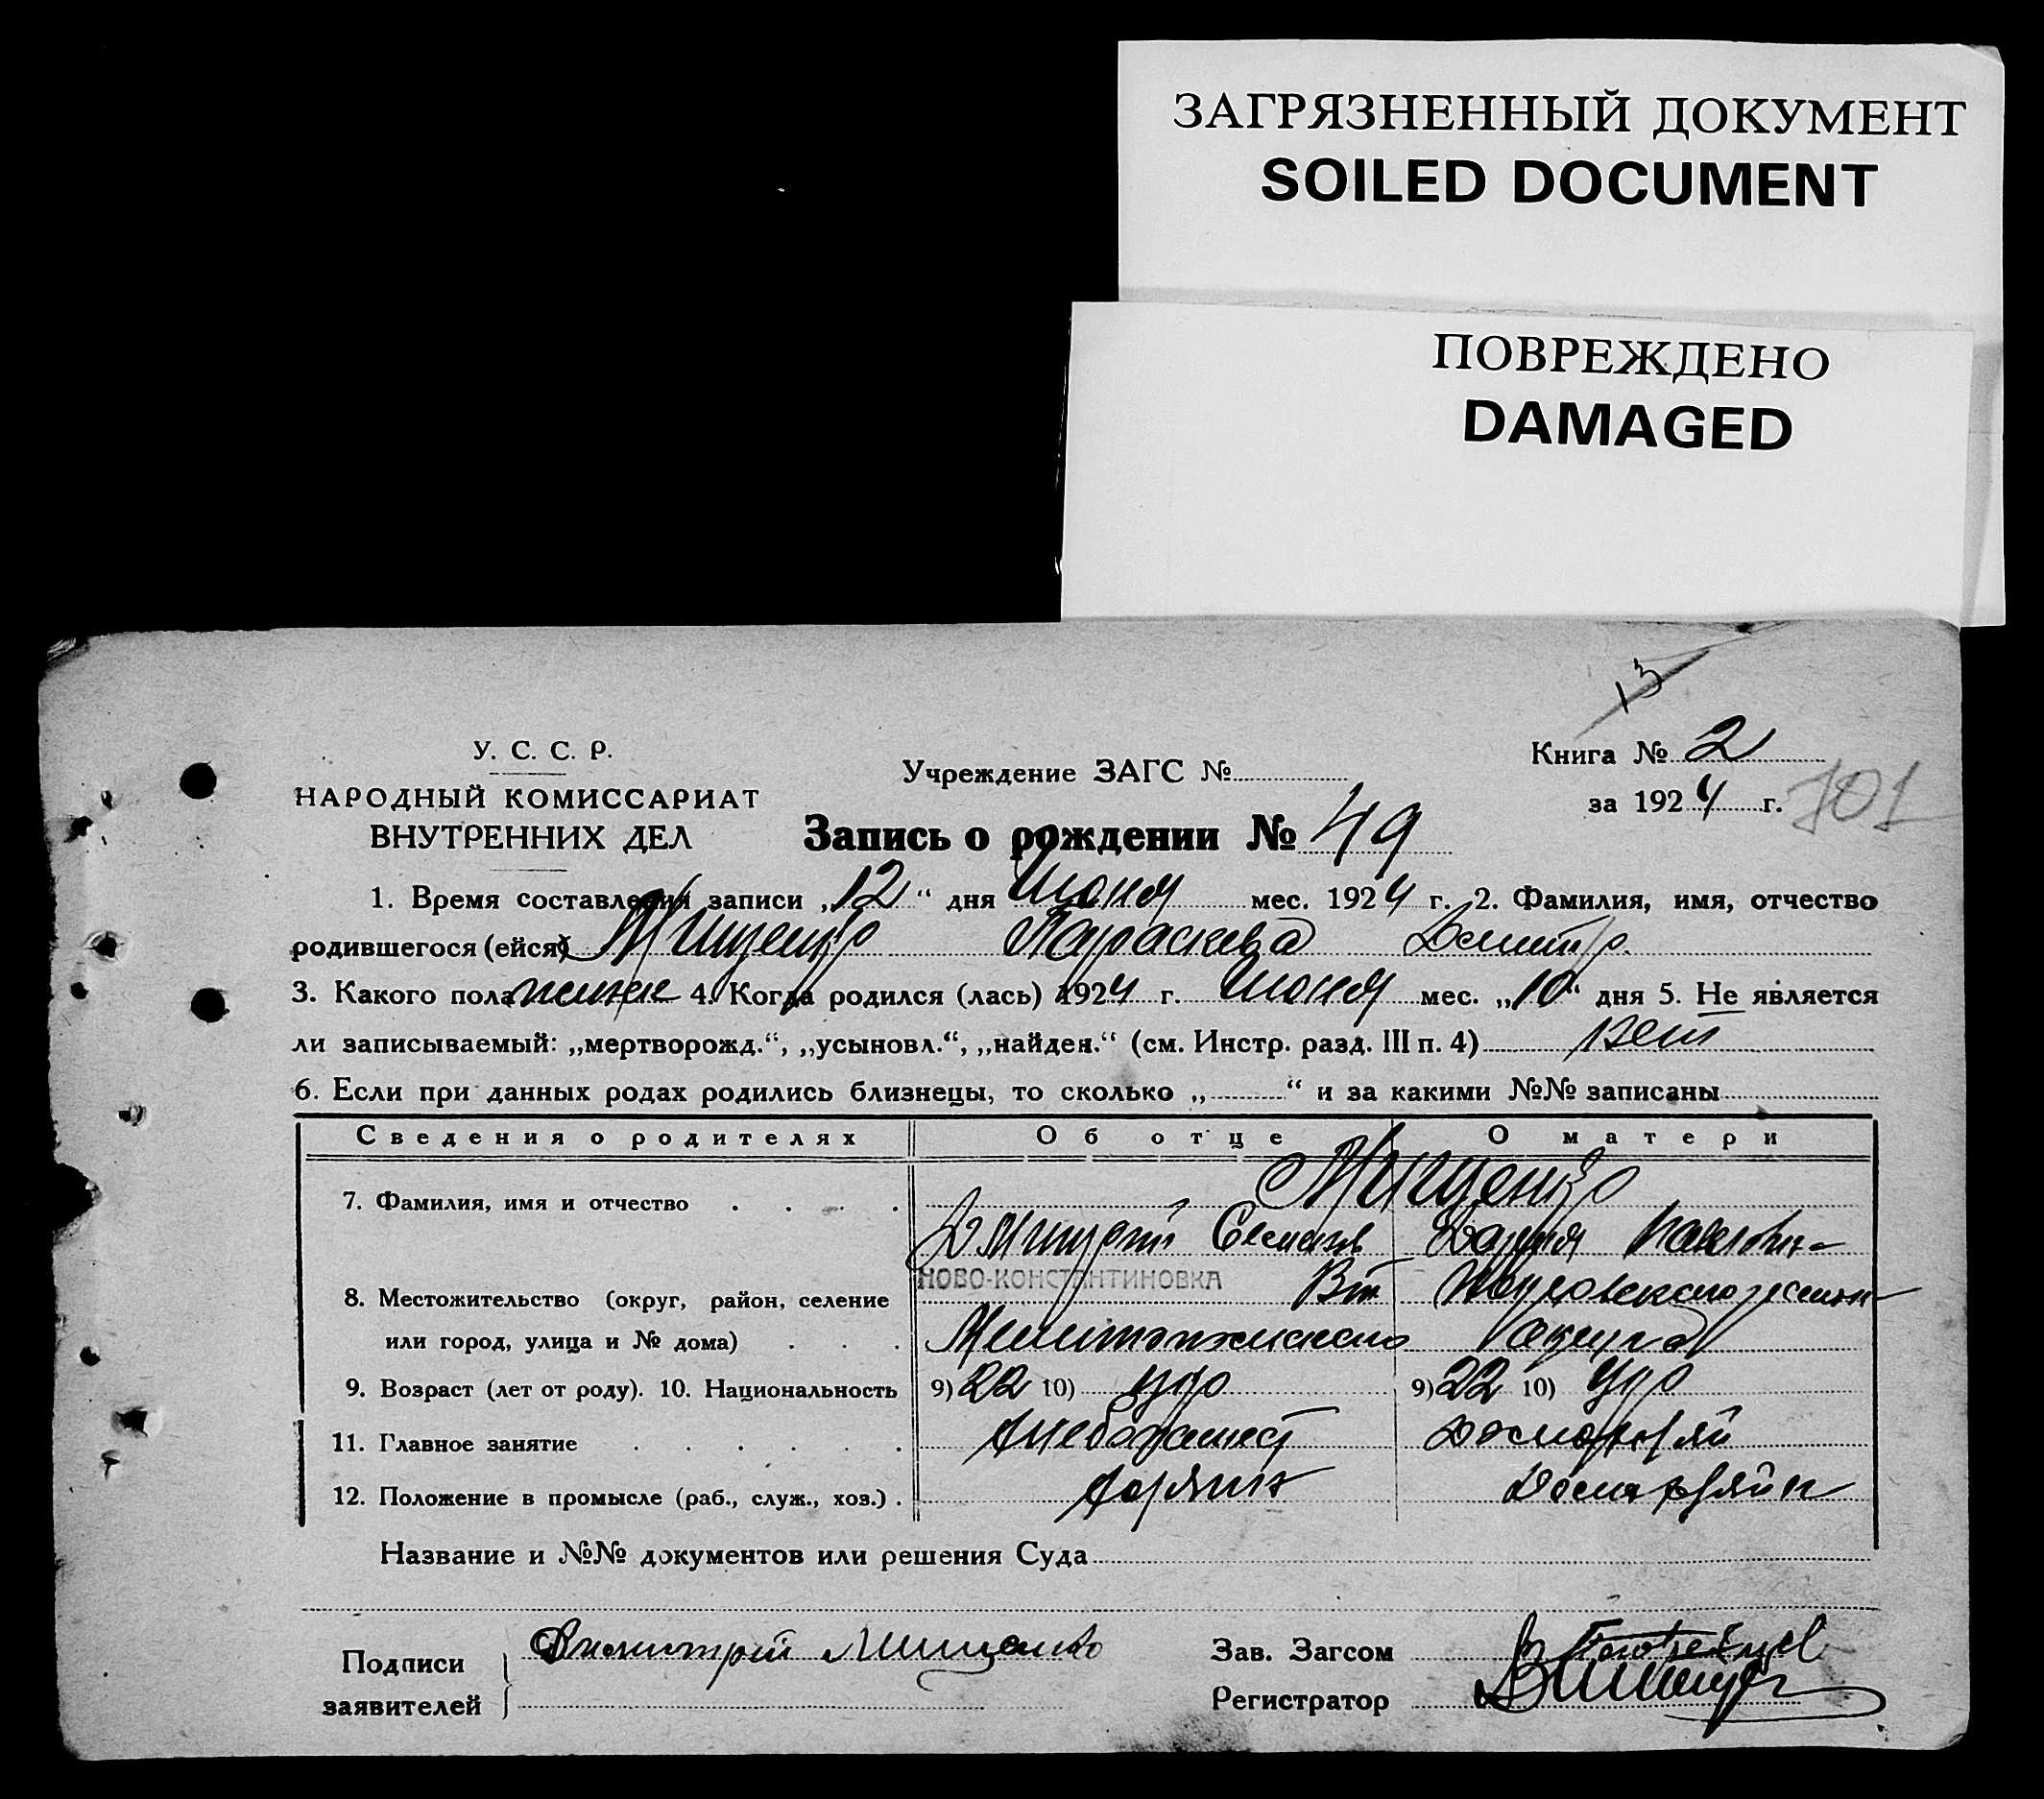 ЗАГРЯЗНЕННЫЙ ДОКУМЕНТ
SOILED DOCUMENT
ПОВРЕЖДЕНО
DAMAGED
13
У. С. С. Р.
НАРОДНЫЙ КОМИССАРИАТ
ВНУТРЕННИХ ДЕЛ
Учреждение ЗАГС №
Книга № 2
за 1924 г. 101
Запись о рождении № 49
1. Время составления записи „12“ дня Июня мес. 1924 г. 2. Фамилия, имя, отчество
родившегося (ейся) Мищенко Параскева Дмитр.
3. Какого пола женск 4. Когда родился (лась) 1924 г. Июня мес. „10“ дня 5. Не является
ли записываемый: „мертворожд.“, „усыновл.“, „найден.“ (см. Инстр. разд. III п. 4) нет
6. Если при данных родах родились близнецы, то сколько „ “ и за какими №№ записаны
Сведения о родителях Об отце О матери
7. Фамилия, имя и отчество Мищенко
Дмитрий Семенов Дария Павловн
8. Местожительство (округ, район, селение НОВО-КОНСТАНТИНОВКА
или город, улица и № дома) Мелитопольского округа
9. Возраст (лет от роду). 10. Национальность 9) 22 10) укр 9) 22 10) укр
11. Главное занятие хлебопашест
12. Положение в промысле (раб., служ., хоз.)
Название и №№ документов или решения Суда
Подписи заявителей Дмитрий Мищенко
Зав. Загсом
Регистратор